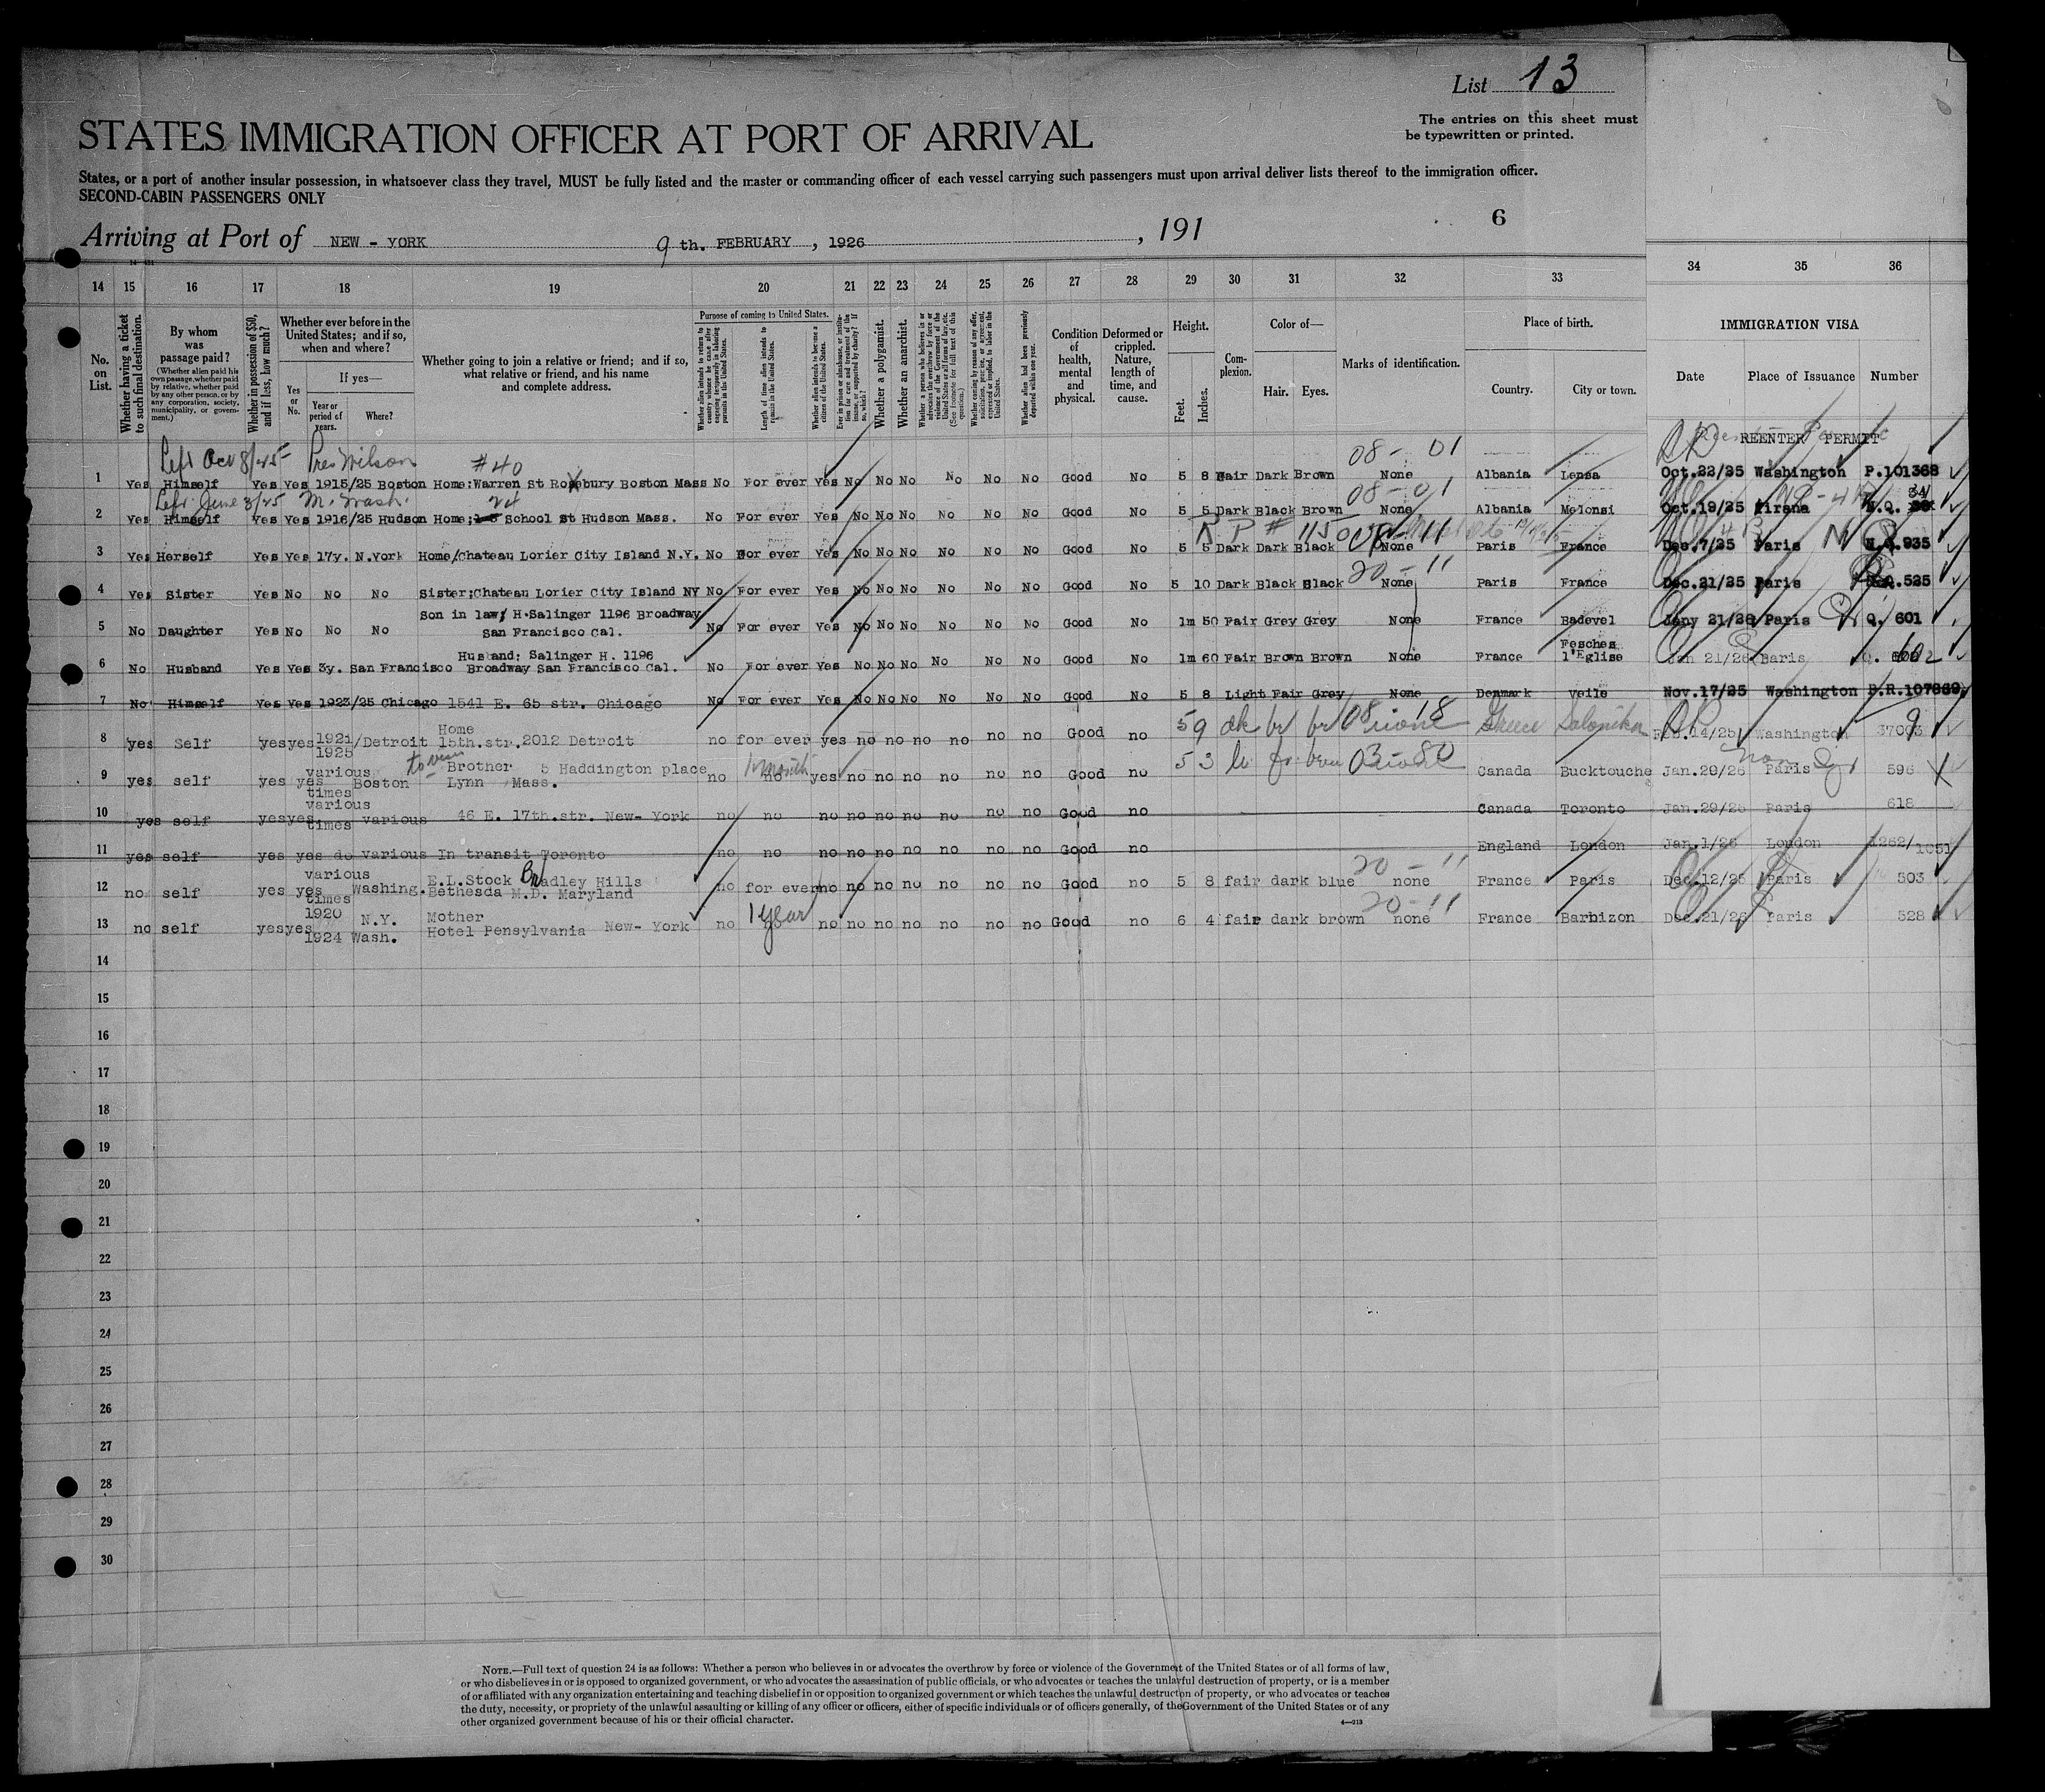 List 13
The entries on this sheet must
be typewritten or printed.
STATES IMMIGRATION OFFICER AT PORT OF ARRIVAL
States, or a port of another insular possession, in whatsoever class they travel, MUST be fully listed and the master or commanding officer of each vessel carrying such passengers must upon arrival deliver lists thereof to the immigration officer.
SECOND-CABIN PASSENGERS ONLY
6
Arriving at Port of NEW - YORK 9 th. FEBRUARY , 1926 , 191
14 15 16 17 18 19 20 21 22 23 24 25 26 27 28 29 30 31 32 33 34 35 36
No. on List.
Whether having a ticket to such final destination.
By whom was passage paid?
(Whether alien paid his own passage, whether paid by relative, whether paid by any other person, or by any corporation, society, municipality, or government.)
Whether in possession of $50, and if less, how much?
Whether ever before in the United States; and if so, when and where?
Yes or No.
If yes—
Year or period of years.
Where?
Whether going to join a relative or friend; and if so, what relative or friend, and his name and complete address.
Purpose of coming to United States.
Length of time alien intends to remain in the United States.
Whether alien intends to become a citizen of the United States.
Whether a polygamist.
Whether an anarchist.
Condition of health, mental and physical.
Deformed or crippled. Nature, length of time, and cause.
Height.
Feet. Inches.
Complexion.
Color of—
Hair. Eyes.
Marks of identification.
Place of birth.
Country. City or town.
IMMIGRATION VISA
Date Place of Issuance Number
Left Oct 8/25 Pres Wilson #40 08 - 01 REENTER PERMIT
1 Yes Himself Yes Yes 1915/25 Boston Home:Warren St Roxbury Boston Mass No For ever Yes No No No No No No Good No 5 8 Fair Dark Brown None Albania Lensa Oct.22/25 Washington P.101368
Left June 3/25 M. Wash. 24 08-01 34
2 Yes Himself Yes Yes 1916/25 Hudson Home; School St Hudson Mass. No For ever Yes No No No No No No Good No 5 5 Dark Black Brown None Albania Melonsi Oct.19/25 Tirana N.Q.
R P # 1150
3 Yes Herself Yes Yes 17y. N.York Home/Chateau Lorier City Island N.Y. No For ever Yes No No No No No No Good No 5 5 Dark Dark Black None Paris France Dec.7/25 Paris N.Q.935
20-11
4 Yes Sister Yes No No No Sister;Chateau Lorier City Island NY No For ever Yes No No No No No No Good No 5 10 Dark Black Black None Paris France Dec.21/25 Paris Q.525
5 No Daughter Yes No No No Son in law; H.Salinger 1196 Broadway San Francisco Cal. No For ever Yes No No No No No No Good No 1m 50 Fair Grey Grey None France Badevel Jany 21/26 Paris Q. 601
6 No Husband Yes Yes 3y. San Francisco Husband: Salinger H. 1196 Broadway San Francisco Cal. No For ever Yes No No No No No No Good No 1m 60 Fair Brown Brown None France Fesches l'Eglise Jan 21/26 Paris Q. 602
7 No Himself Yes Yes 1923/25 Chicago 1541 E. 65 str. Chicago No For ever Yes No No No No No No Good No 5 8 Light Fair Grey None Denmark Veile Nov.17/25 Washington P.R.107869
8 yes Self yes yes 1921 1925 /Detroit Home 15th.str.2012 Detroit no for ever yes no no no no no no Good no 5 9 dk br br 08-18 none Greece Salonika Feb.14/25 Washington 37003 9
9 yes self yes yes various times Boston to view Brother 5 Haddington place Lynn Mass. no 1 month no yes no no no no no no Good no 5 3 03-80 Canada Bucktouche Jan.29/26 Paris 596 Non
10 yes self yes yes various times various 46 E. 17th.str. New-York no no no no no no no no no Good no Canada Toronto Jan.29/26 Paris 618
11 yes self yes yes do various In transit Toronto no no no no no no no no no Good no England London Jan.1/26 London 1262/1051
20-11
12 no self yes yes various times Washing. E.L.Stock Bradley Hills Bethesda M.D. Maryland no for ever no no no no no no no Good no 5 8 fair dark blue none France Paris Dec.12/25 Paris 503
20-11
13 no self yes yes 1920 1924 N.Y. Wash. Mother Hotel Pensylvania New-York no 1 year no no no no no no no no Good no 6 4 fair dark brown none France Barbizon Dec.21/26 Paris 528
14
15
16
17
18
19
20
21
22
23
24
25
26
27
28
29
30
NOTE.—Full text of question 24 is as follows: Whether a person who believes in or advocates the overthrow by force or violence of the Government of the United States or of all forms of law,
or who disbelieves in or is opposed to organized government, or who advocates the assassination of public officials, or who advocates or teaches the unlawful destruction of property, or is a member
of or affiliated with any organization entertaining and teaching disbelief in or opposition to organized government or which teaches the unlawful destruction of property, or who advocates or teaches
the duty, necessity, or propriety of the unlawful assaulting or killing of any officer or officers, either of specific individuals or of officers generally, of the Government of the United States or of any
other organized government because of his or their official character.
4—213